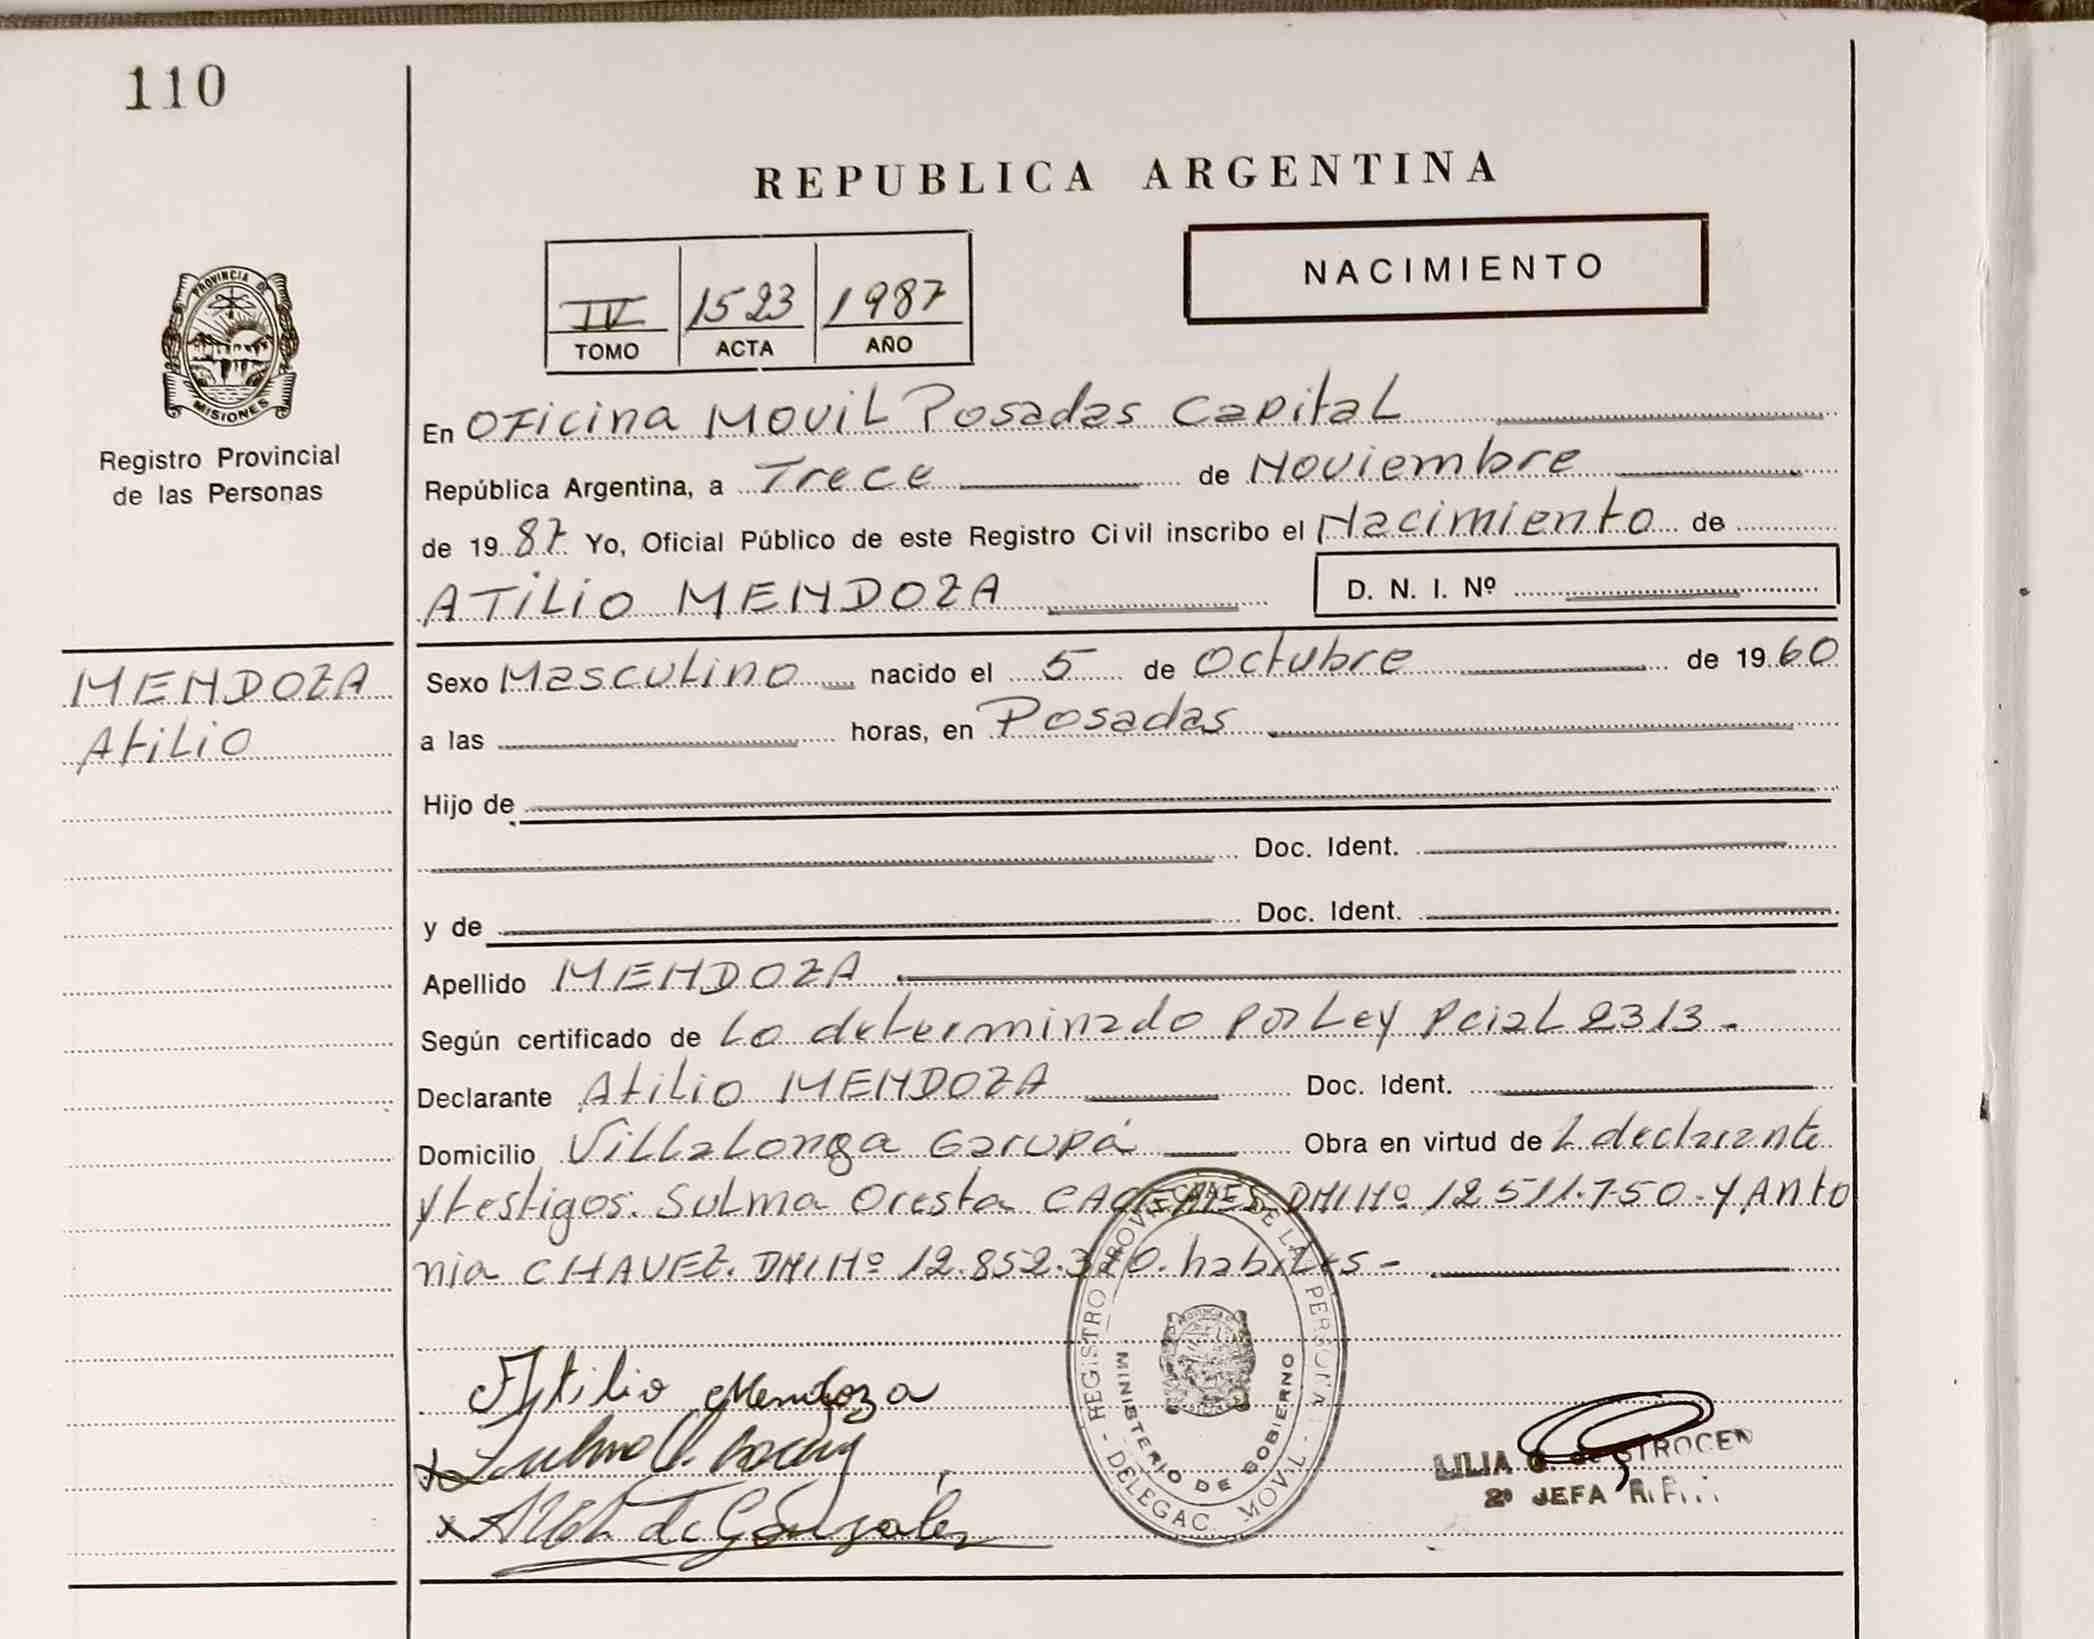 110
REPUBLICA ARGENTINA
NACIMIENTO
IV 1523 1987
TOMO ACTA AÑO
PROVINCIA DE
MISIONES
Registro Provincial
de las Personas
En Oficina Movil Posadas Capital
República Argentina, a Trece de Noviembre
de 1987 Yo, Oficial Público de este Registro Civil inscribo el Nacimiento de
ATILIO MENDOZA D. N. I. Nº
MENDOZA
Atilio
Sexo Masculino nacido el 5 de Octubre de 1960
a las horas, en Posadas
Hijo de
Doc. Ident.
y de Doc. Ident.
Apellido MENDOZA
Según certificado de Lo determinado por Ley Pcial 2313.
Declarante Atilio MENDOZA Doc. Ident.
Domicilio Villalonga Garupá Obra en virtud de l declarante
y testigos: Sulma Oresta DNI Nº 12.511.750. y Anto
nia CHAVEZ. DNI Nº 12.852.3 0. habiles -
Atilio Mendoza
de Gonzalez
REGISTRO PROVINCIAL DE LAS PERSONAS
MINISTERIO DE GOBIERNO
DELEGAC. MOVIL
LILIA
2º JEFA